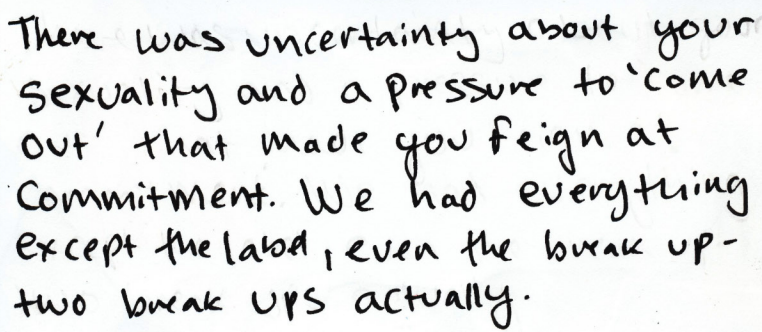 There was uncertainty about your
sexuality and a pressure to 'come
out' that made you feign at
commitment. We had everything
except the label, even the break up-
two break ups actually.